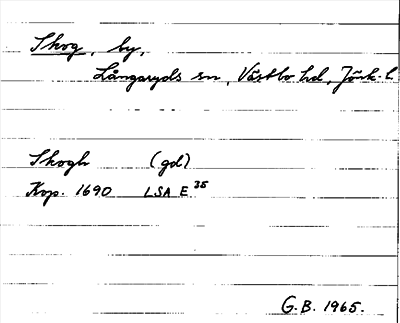 Skog, by,
Långaryds sn, Västbo hd, Jönk. l
Skogh (gd)
Kop. 1690 LSA E 35
G.B. 1965.